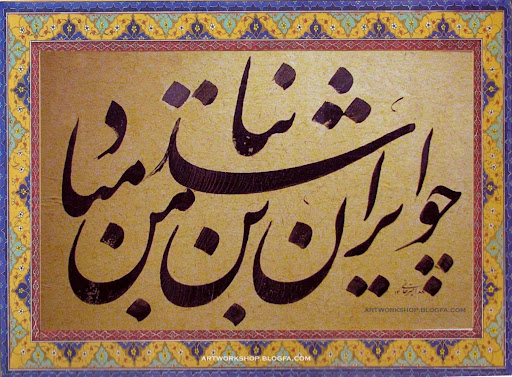 چو ایران نباشد تن من مباد
ARTWORKSHOP.BLOGFA.COM
ARTWORKSHOP.BLOGFA.COM